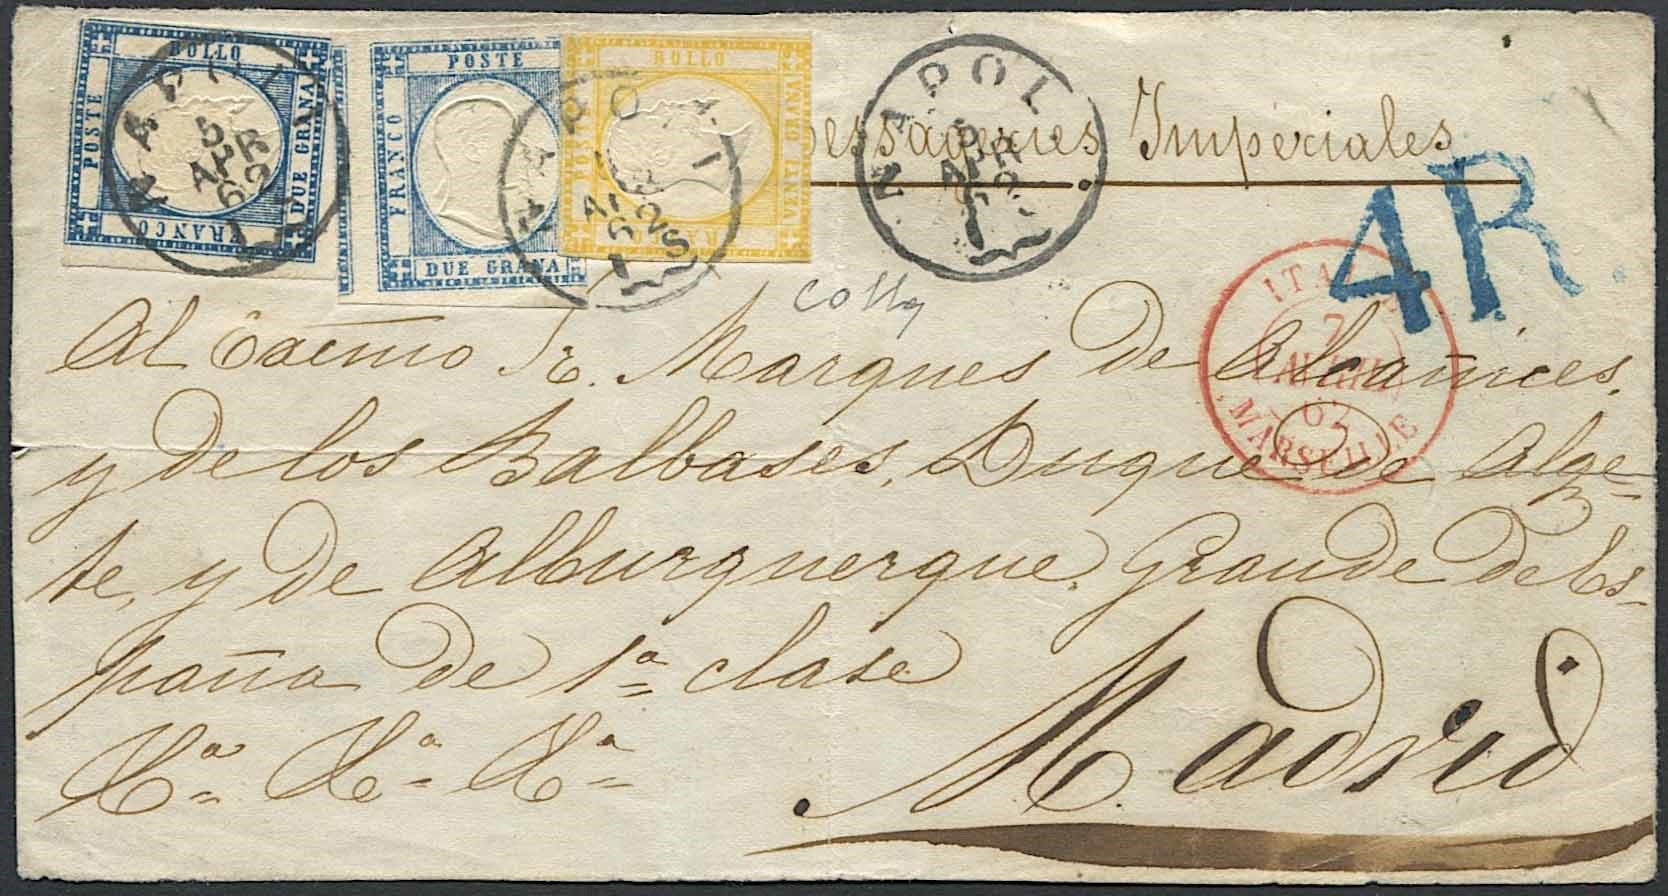 BOLLO
POSTE
DUE GRANA
FRANCO
POSTE
FRANCO
DUE GRANA
BOLLO
POSTE
VENTI GRANA
FRANCO
NAPOLI
5
APR
62
NAPOLI
APR
62
1
NAPOLI
5
APR
62
1
Messageries Imperiales
4R.
ITALIE
7
AVRIL
62
MARSEILLE
Colla
Al Excmo Sr. Marques de Alcañices,
y de los Balbases, Duque de Alge-
te, y de Alburquerque, Grande de Es-
paña de 1ª clase
&ª &ª &ª
Madrid